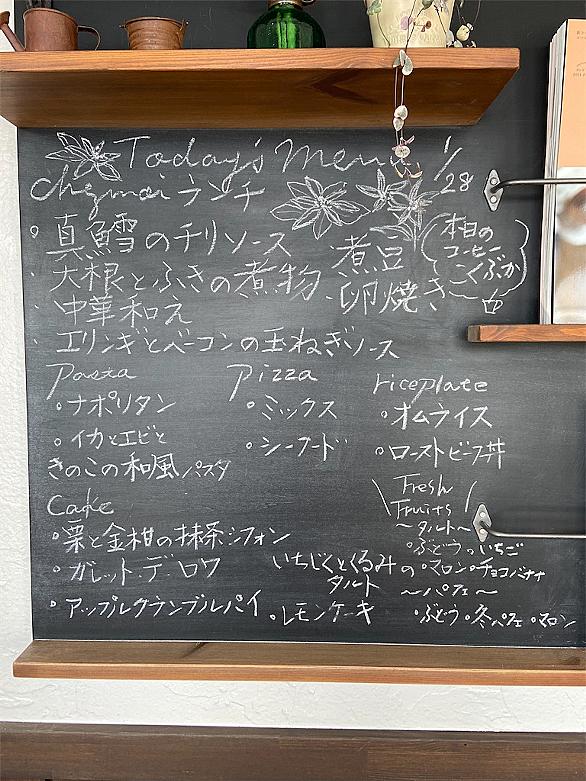 Today's Menu 1/28
chamoiランチ
。真鱈のチリソース
・大根とふきの煮物 ・煮豆
・中華和え ・卵焼き
・エリンギとベーコンの玉ねぎソース
本日の
コーヒー
こくぶか
Pasta
。ナポリタン
。イカとエビと
きのこの和風パスタ
Pizza
。ミックス
。シーフード
riceplate
。オムライス
。ローストビーフ丼
Cake
。栗と金柑の抹茶シフォン
。ガレット・デ・ロワ
。アップルクランブルパイ
いちじくとくるみの
タルト
。レモンケーキ
Fresh
Fruits
〜タルト〜
。ぶどう。いちご
。マロン。チョコバナナ
〜パフェ〜
。ぶどう。冬パフェ。マロン